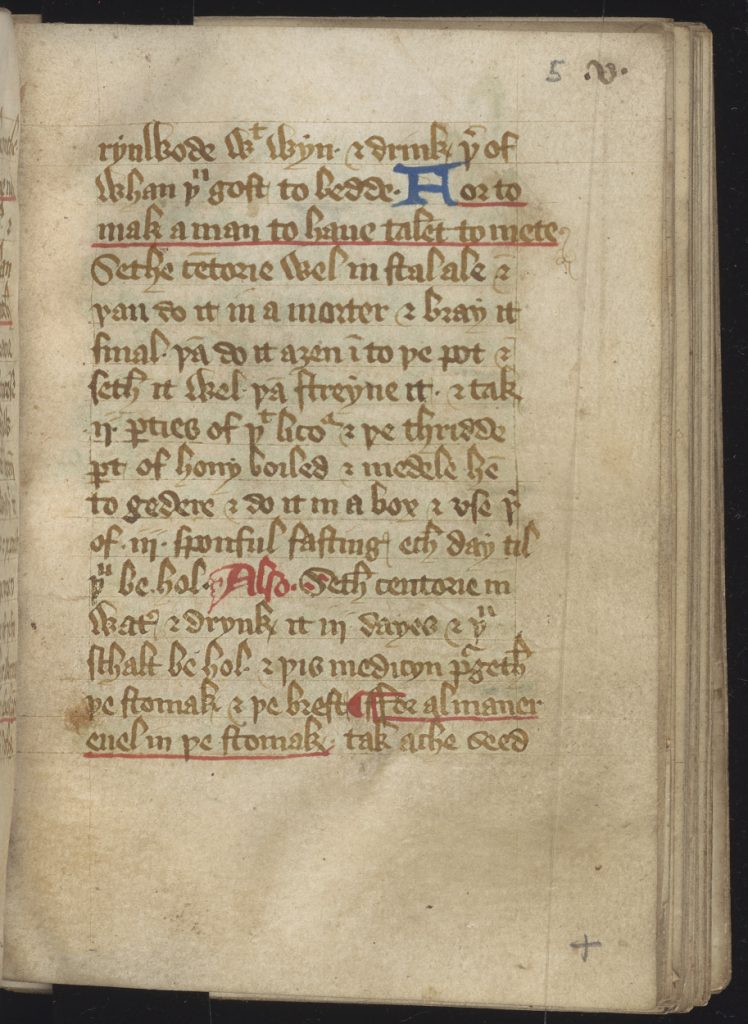 5 .v.
rynwode wᵗ wyn · & drink yͬ of
whan yᵘ gost to bedde · For to
mak a man to haue talēt to mete
Sethe cētorie wel in stal ale &
yan do it in a morter & bray it
smal · yā do it aȝen ī to ye pot &
seth it wel · yā streyne it · & tak
.ij. ꝑties of yᵗ licoʳ & ye thridde
ꝑt of hony boiled & medele hē
to gedere & do it in a box & vse yͬ
of · iij · sponful fasting ech day til
yᵘ be hol · Also · Seth centorie in
wat͛ & drynk it iij dayes & yᵘ
schalt be hol · & yis medicyn pᵃgeth
ye stomak & ye brest ffor al maner
euel in ye stomak tak ache seed
+